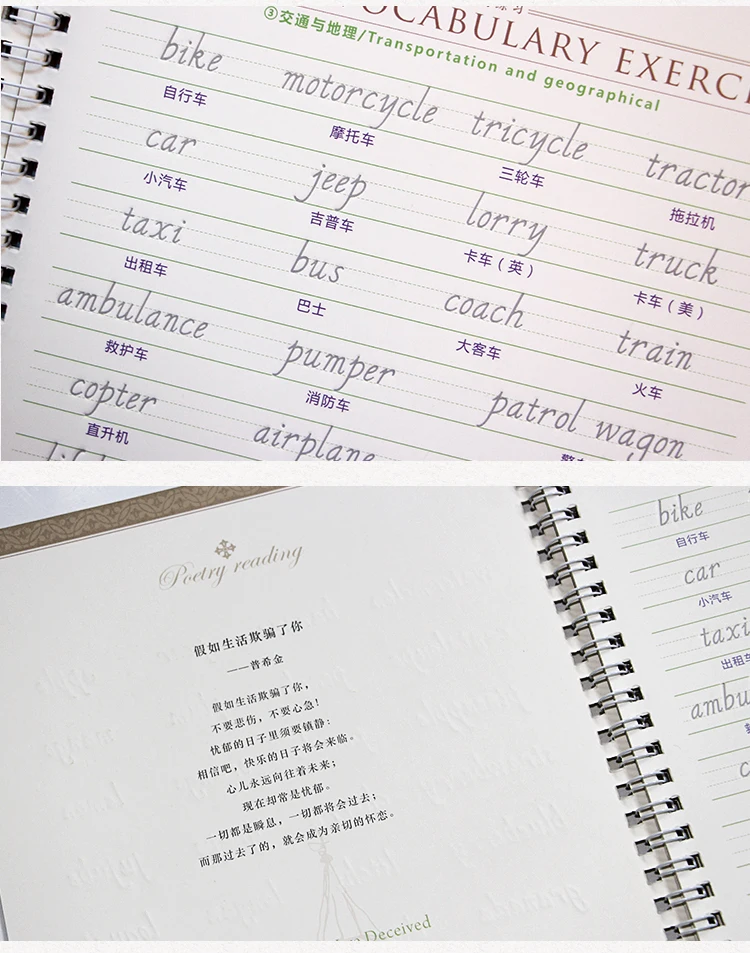 练习
OCABULARY EXERC
③交通与地理/Transportation and geographical
bike motorcycle tricycle tractor
自行车 摩托车 三轮车 拖拉机
car jeep lorry truck
小汽车 吉普车 卡车（英） 卡车（美）
taxi bus coach train
出租车 巴士 大客车 火车
ambulance pumper patrol wagon
救护车 消防车
copter airplane
直升机
Poetry reading
假如生活欺骗了你
——普希金
假如生活欺骗了你，
不要悲伤，不要心急！
忧郁的日子里须要镇静：
相信吧，快乐的日子将会来临。
心儿永远向往着未来；
现在却常是忧郁。
一切都是瞬息，一切都将会过去；
而那过去了的，就会成为亲切的怀恋。
Deceived
bike
自行车
car
小汽车
taxi
出租车
ambu
c